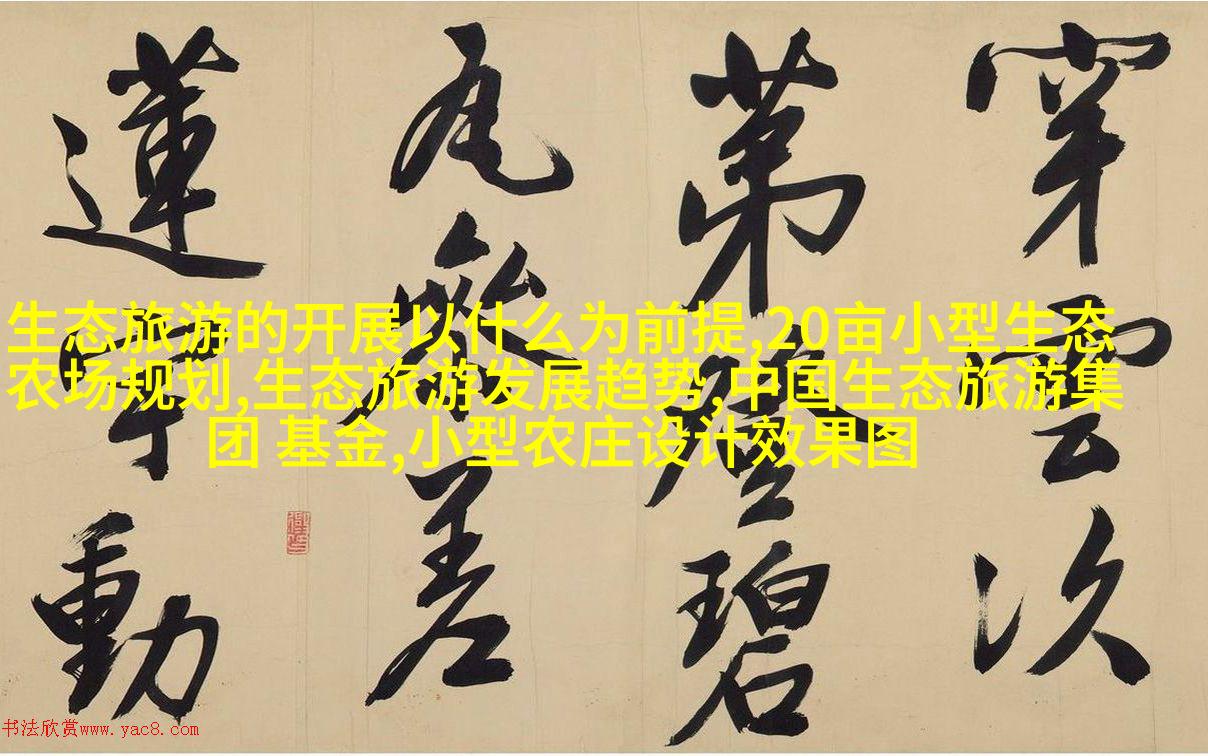 穿雲次
第碧
瓦參差
蓮宇動
生态旅游的开展以什么为前提,20亩小型生态
农场规划,生态旅游发展趋势,中国生态旅游集
团 基金,小型农庄设计效果图
书法欣赏www.yac8.com